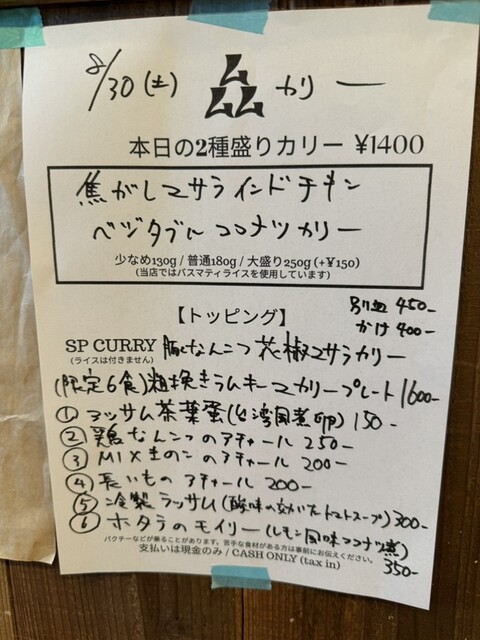 8/30(土) ムムム カリー
本日の2種盛りカリー ¥1400
焦がしマサラインドチキン
ベジタブルココナツカリー
少なめ130g / 普通180g / 大盛り250g (+¥150)
(当店ではバスマティライスを使用しています)
【トッピング】
別皿 450-
かけ 400-
SP CURRY 豚なんこつ 花椒マサラカリー
(ライスは付きません)
(限定6食)粗挽きラムキーマカリープレート 1600-
① アッサム茶葉蛋(台湾風煮卵) 150-
② 鶏なんこつのアチャール 250-
③ MIXきのこのアチャール 200-
④ 長いものアチャール 200-
⑤ 冷製ラッサム(酸味の効いたトマトスープ) 300-
⑥ ホタテのモイリー(レモン風味ココナツ煮)
350-
パクチーなどが乗ることがあります。苦手な食材がある方は事前にお伝えください。
支払いは現金のみ / CASH ONLY (tax in)